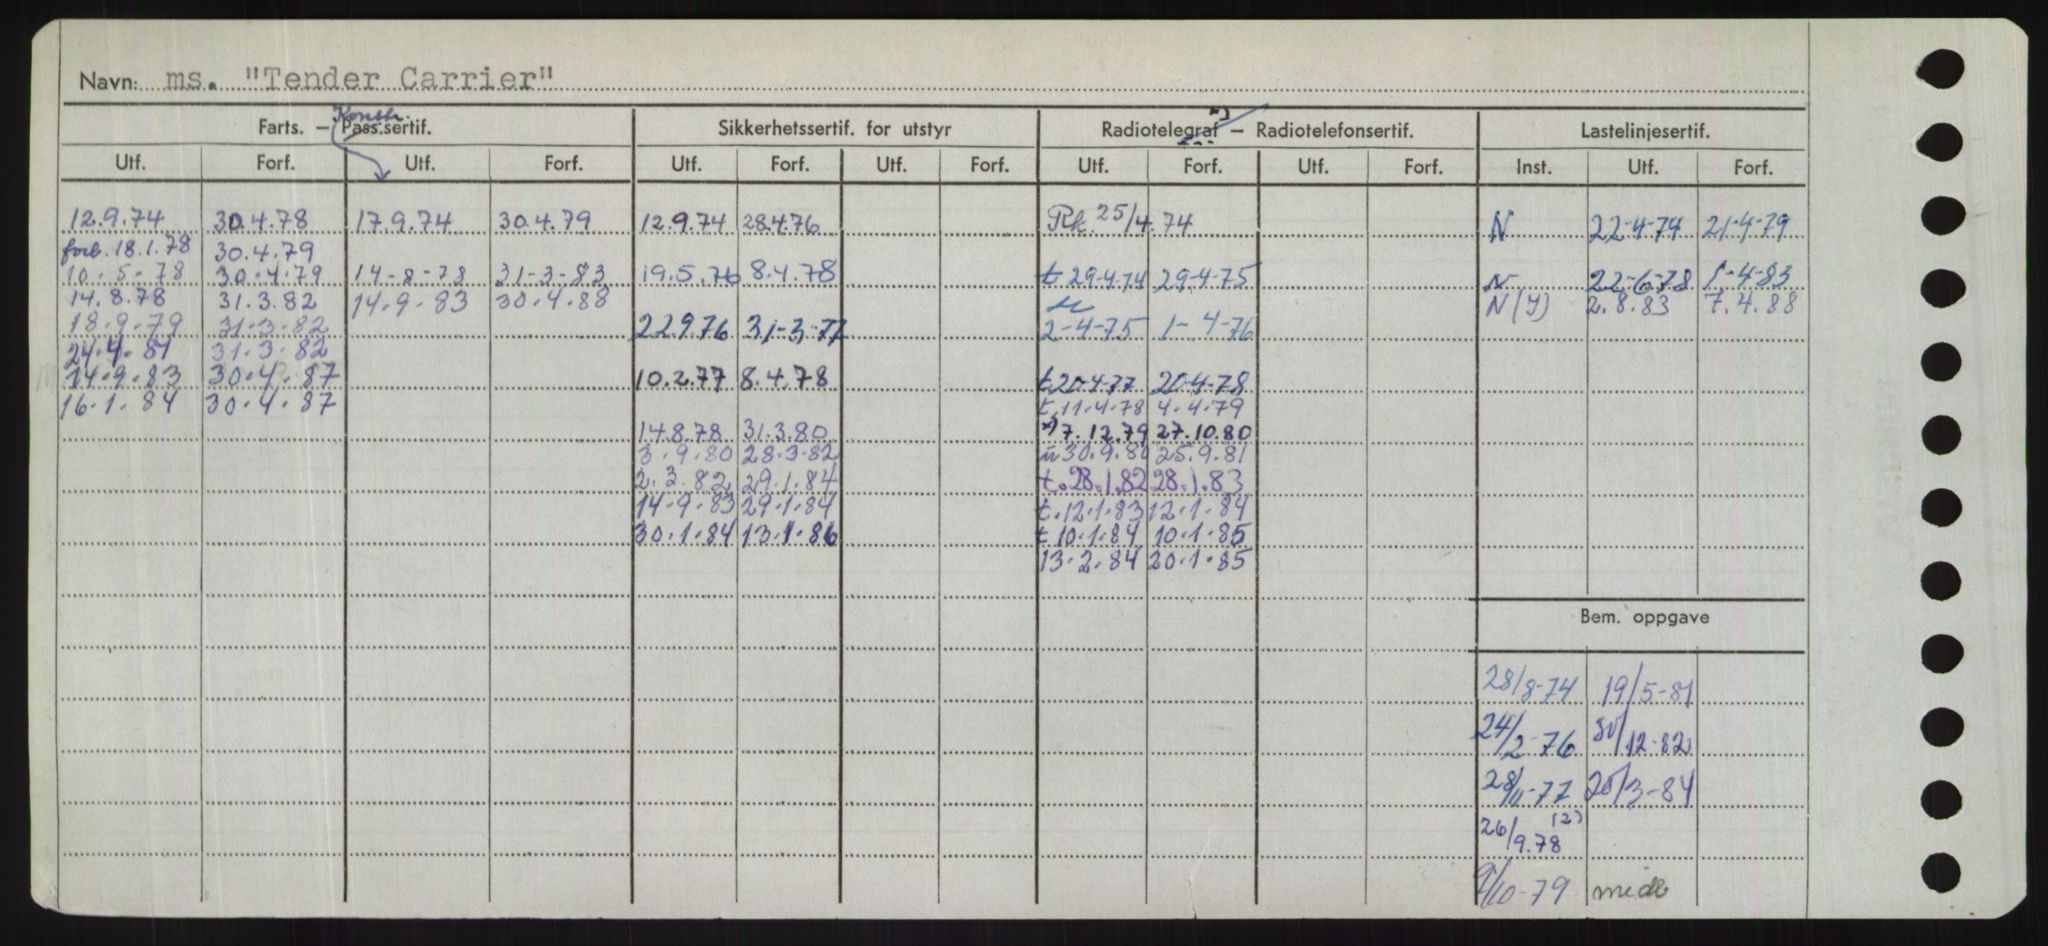 Navn: ms. "Tender Carrier"
Konstr.
Farts. — Pass.sertif. Sikkerhetssertif. for utstyr Radiotelegraf — Radiotelefonsertif. Lastelinjesertif.
Utf. Forf. Utf. Forf. Utf. Forf. Utf. Forf. Utf. Forf. Utf. Forf. Inst. Utf. Forf.
12.9.74 30.4.78 17.9.74 30.4.79 12.9.74 28.4.76 Rk. 25/4.74 N 22-4-74 21-4-79
forb. 18.1.78 30.4.79
10.5.78 30.4.79 14-8-78 31-3-83 19.5.76 8.4.78 t 29-4-74 29-4-75 N 22-6-78 1-4-83
14.8.78 31.3.82 14.9.83 30.4.88 N(Y) 2.8.83 7.4.88
18.9.79 31.3.82 22.9.76 31-3-77 2-4-75 1-4-76
24.4.81 31.3.82
14.9.83 30.4.87 10.2.77 8.4.78 t 20-4-77 20-4-78
16.1.84 30.4.87 t. 11.4.78 4.4.79
14.8.78 31.3.80 *) 7.12.79 27.10.80
3.9.80 28.3.82 30.9.80 25.9.81
2.3.82 29.1.84 t. 28.1.82 28.1.83
14.9.83 29.1.84 t. 12.1.83 12.1.84
30.1.84 13.1.86 t 10.1.84 10.1.85
13.2.84 20.1.85
Bem. oppgave
28/8-74 19/5-81
24/2-76 30/12-82
28/11-77 20/3-84
26/9.78 (2)
9/10-79 midl